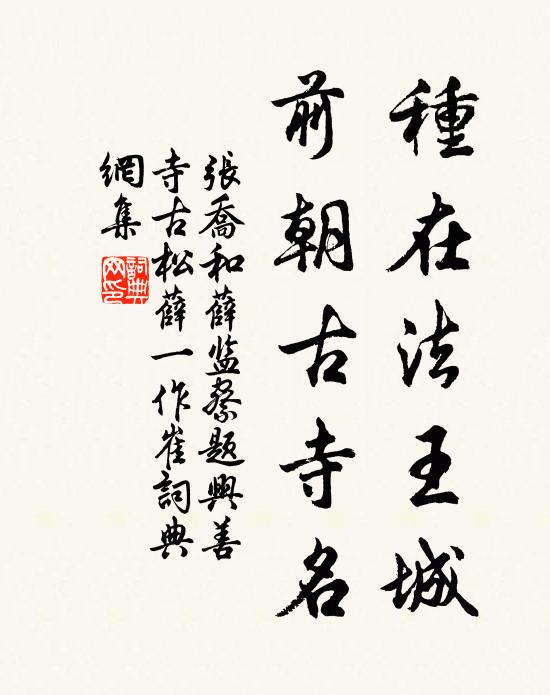 種在法王城
前朝古寺名
張喬和薛監察題興善
寺古松薛一作崔詞典
網集
詞典網印